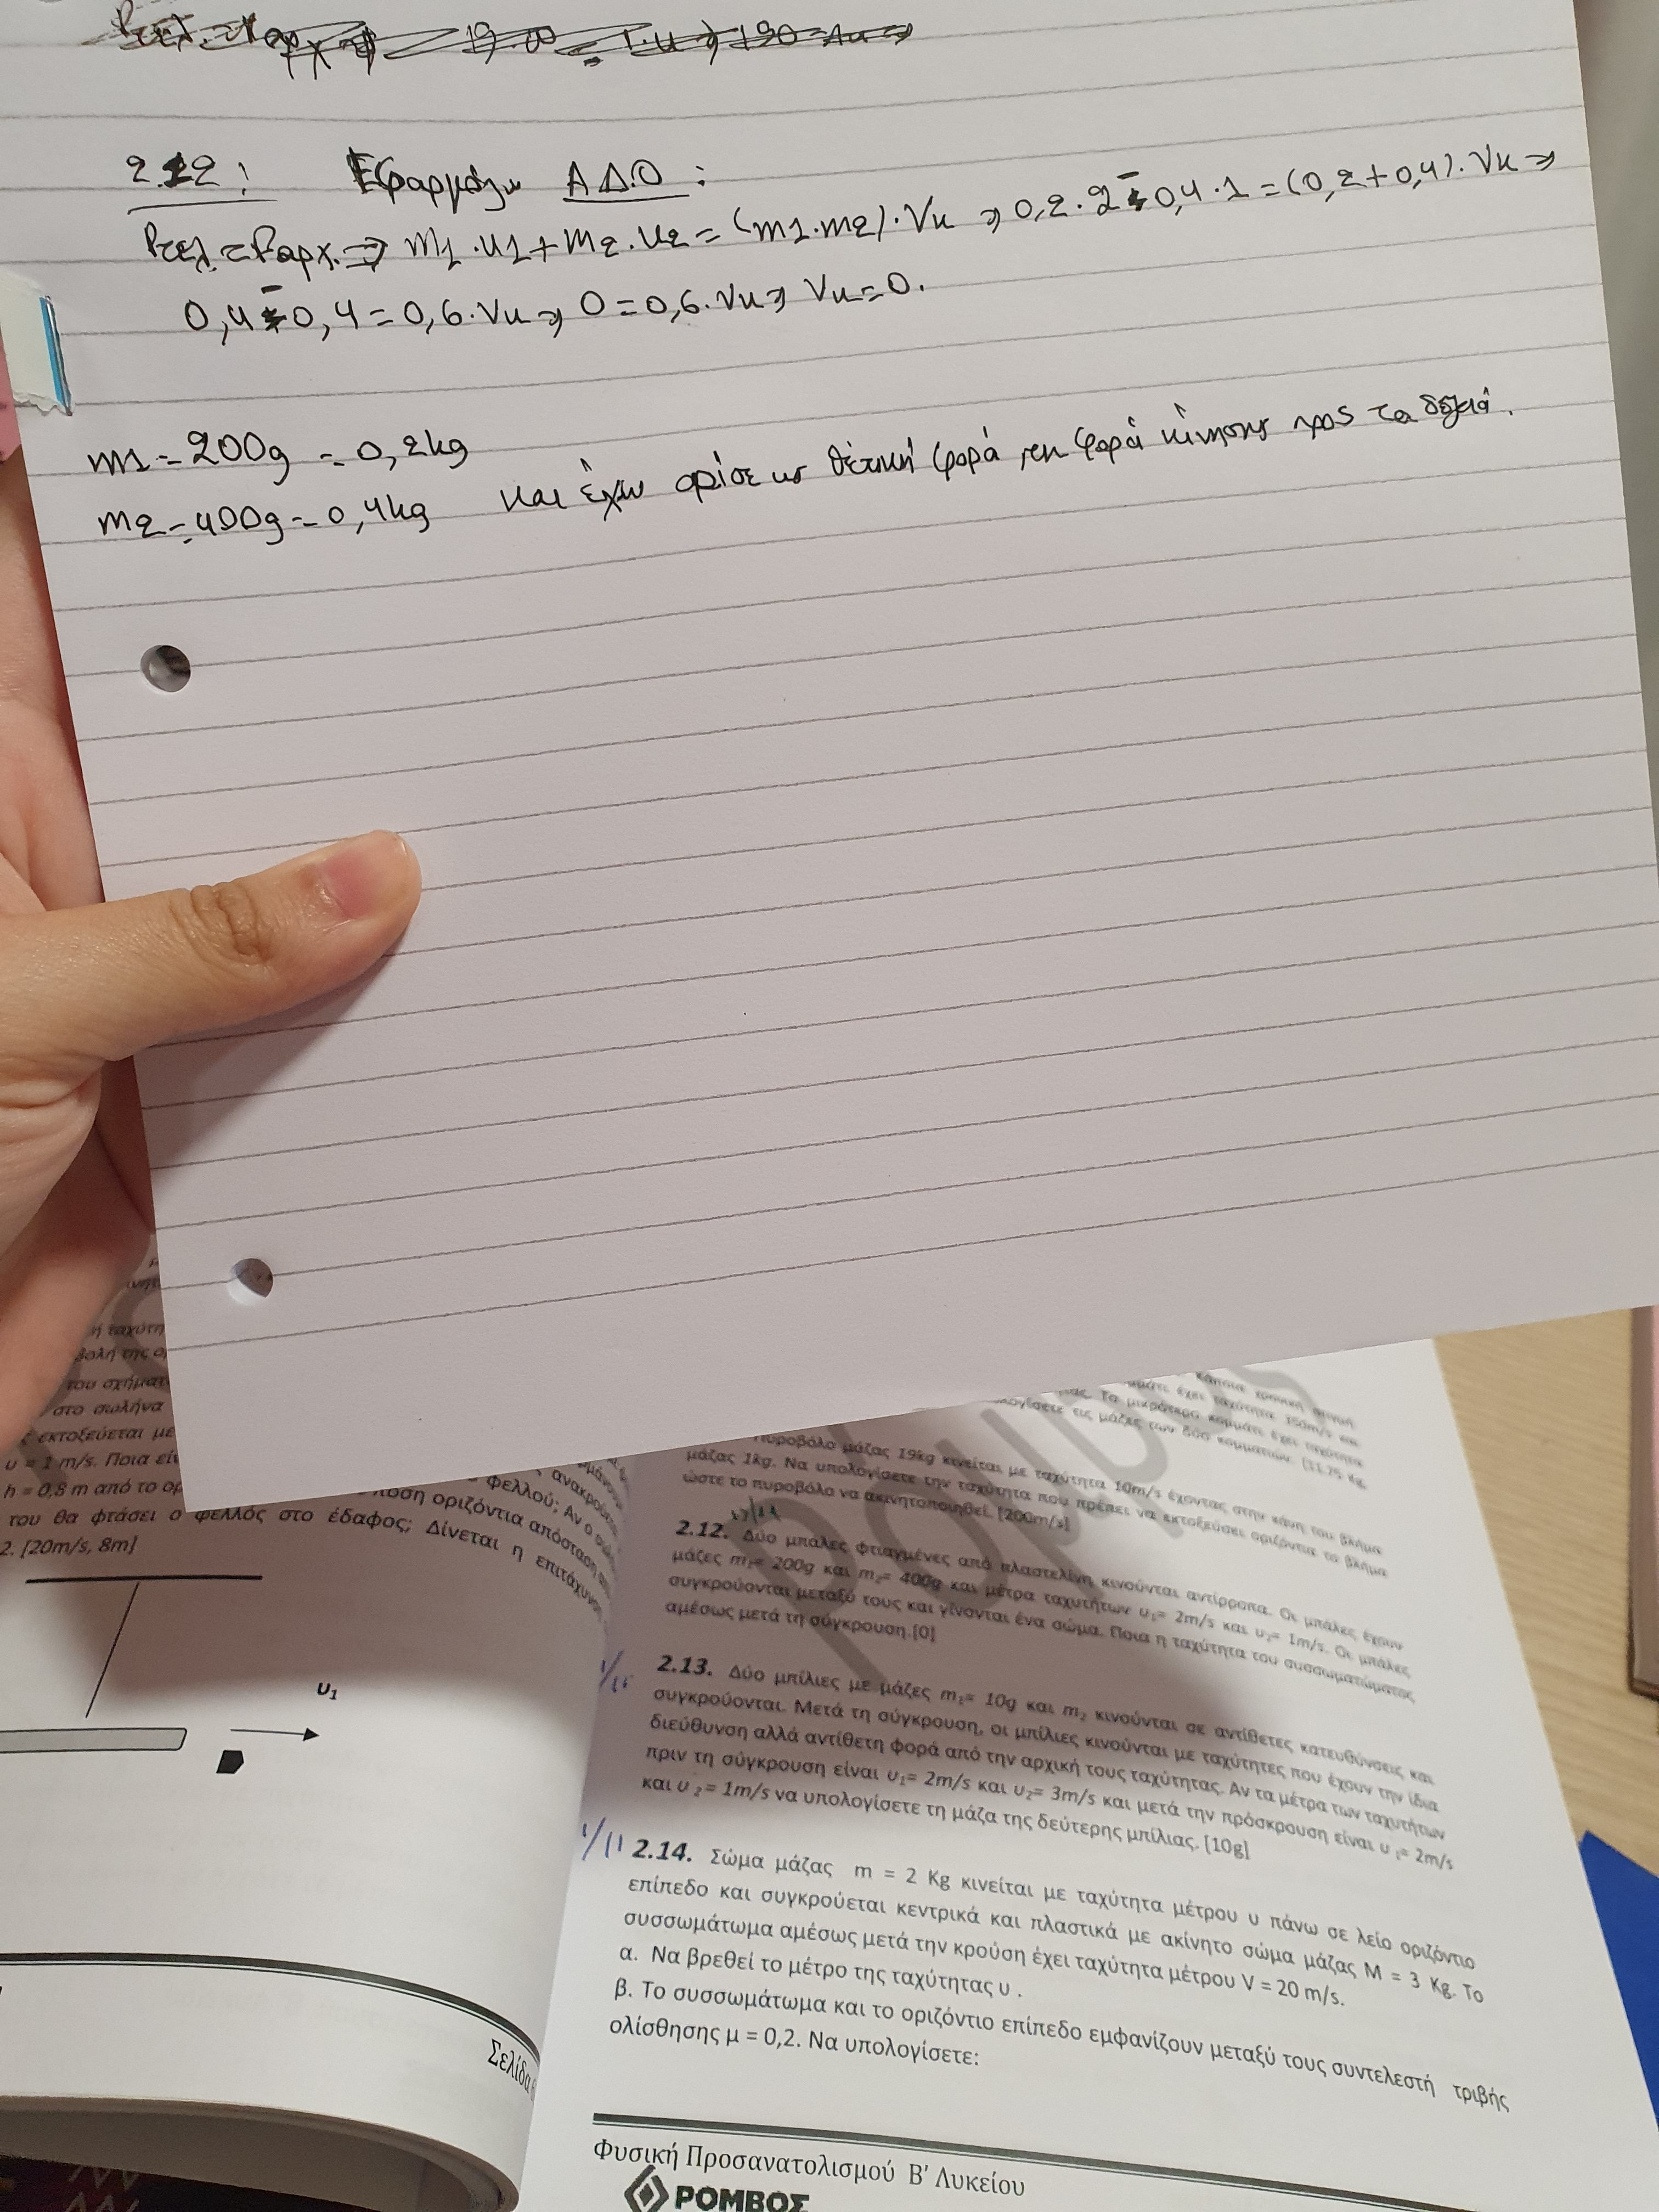 2.12:
Εφαρμόζω Α.Δ.Ο :
Pτελ.=Pαρχ. ⇒ m1·u1+m2·u2=(m1·m2)·Vκ ⇒ 0,2·2-0,4·1=(0,2+0,4)·Vκ ⇒
0,4-0,4=0,6·Vκ ⇒ 0=0,6·Vκ ⇒ Vκ=0.
m1=200g=0,2kg
m2=400g=0,4kg
και έχω ορίσει ως θετική φορά την φορά κίνησης προς τα δεξιά.
ή ταχύτη
βολή της ο
του σχήματ
στο σωλήνα
εκτοξεύεται με
υ = 1 m/s. Ποια είν
h = 0,8 m από το ορ
φελλού; Αν ο
οριζόντια απόσταση
του θα φτάσει ο φελλός στο έδαφος; Δίνεται η επιτάχυν
2. [20m/s, 8m]
υ1
Σελίδα
κάποια χρονική στιγμή
έχει ταχύτητα 150m/s και
Το μικρότερο κομμάτι έχει ταχύτητα
τις μάζες των δύο κομματιών. [11,25 Kg,
Πυροβόλο μάζας 19kg κινείται με ταχύτητα 10m/s έχοντας στην κάνη του βλήμα
μάζας 1kg. Να υπολογίσετε την ταχύτητα που πρέπει να εκτοξεύσει οριζόντια το βλήμα
ώστε το πυροβόλο να ακινητοποιηθεί. [200m/s]
2.12. Δύο μπάλες φτιαγμένες από πλαστελίνη κινούνται αντίρροπα. Οι μπάλες έχουν
μάζες m1= 200g και m2= 400g και μέτρα ταχυτήτων υ1= 2m/s και υ2= 1m/s. Οι μπάλες
συγκρούονται μεταξύ τους και γίνονται ένα σώμα. Ποια η ταχύτητα του συσσωματώματος
αμέσως μετά τη σύγκρουση.[0]
1/11
2.13. Δύο μπίλιες με μάζες m1= 10g και m2 κινούνται σε αντίθετες κατευθύνσεις και
συγκρούονται. Μετά τη σύγκρουση, οι μπίλιες κινούνται με ταχύτητες που έχουν την ίδια
διεύθυνση αλλά αντίθετη φορά από την αρχική τους ταχύτητας. Αν τα μέτρα των ταχυτήτων
πριν τη σύγκρουση είναι υ1= 2m/s και υ2= 3m/s και μετά την πρόσκρουση είναι υ 1= 2m/s
και υ 2= 1m/s να υπολογίσετε τη μάζα της δεύτερης μπίλιας. [10g]
1/11
2.14. Σώμα μάζας m = 2 Kg κινείται με ταχύτητα μέτρου υ πάνω σε λείο οριζόντιο
επίπεδο και συγκρούεται κεντρικά και πλαστικά με ακίνητο σώμα μάζας M = 3 Kg. Το
συσσωμάτωμα αμέσως μετά την κρούση έχει ταχύτητα μέτρου V = 20 m/s.
α. Να βρεθεί το μέτρο της ταχύτητας υ .
β. Το συσσωμάτωμα και το οριζόντιο επίπεδο εμφανίζουν μεταξύ τους συντελεστή τριβής
ολίσθησης μ = 0,2. Να υπολογίσετε:
Φυσική Προσανατολισμού Β' Λυκείου
ΡΟΜΒΟΣ